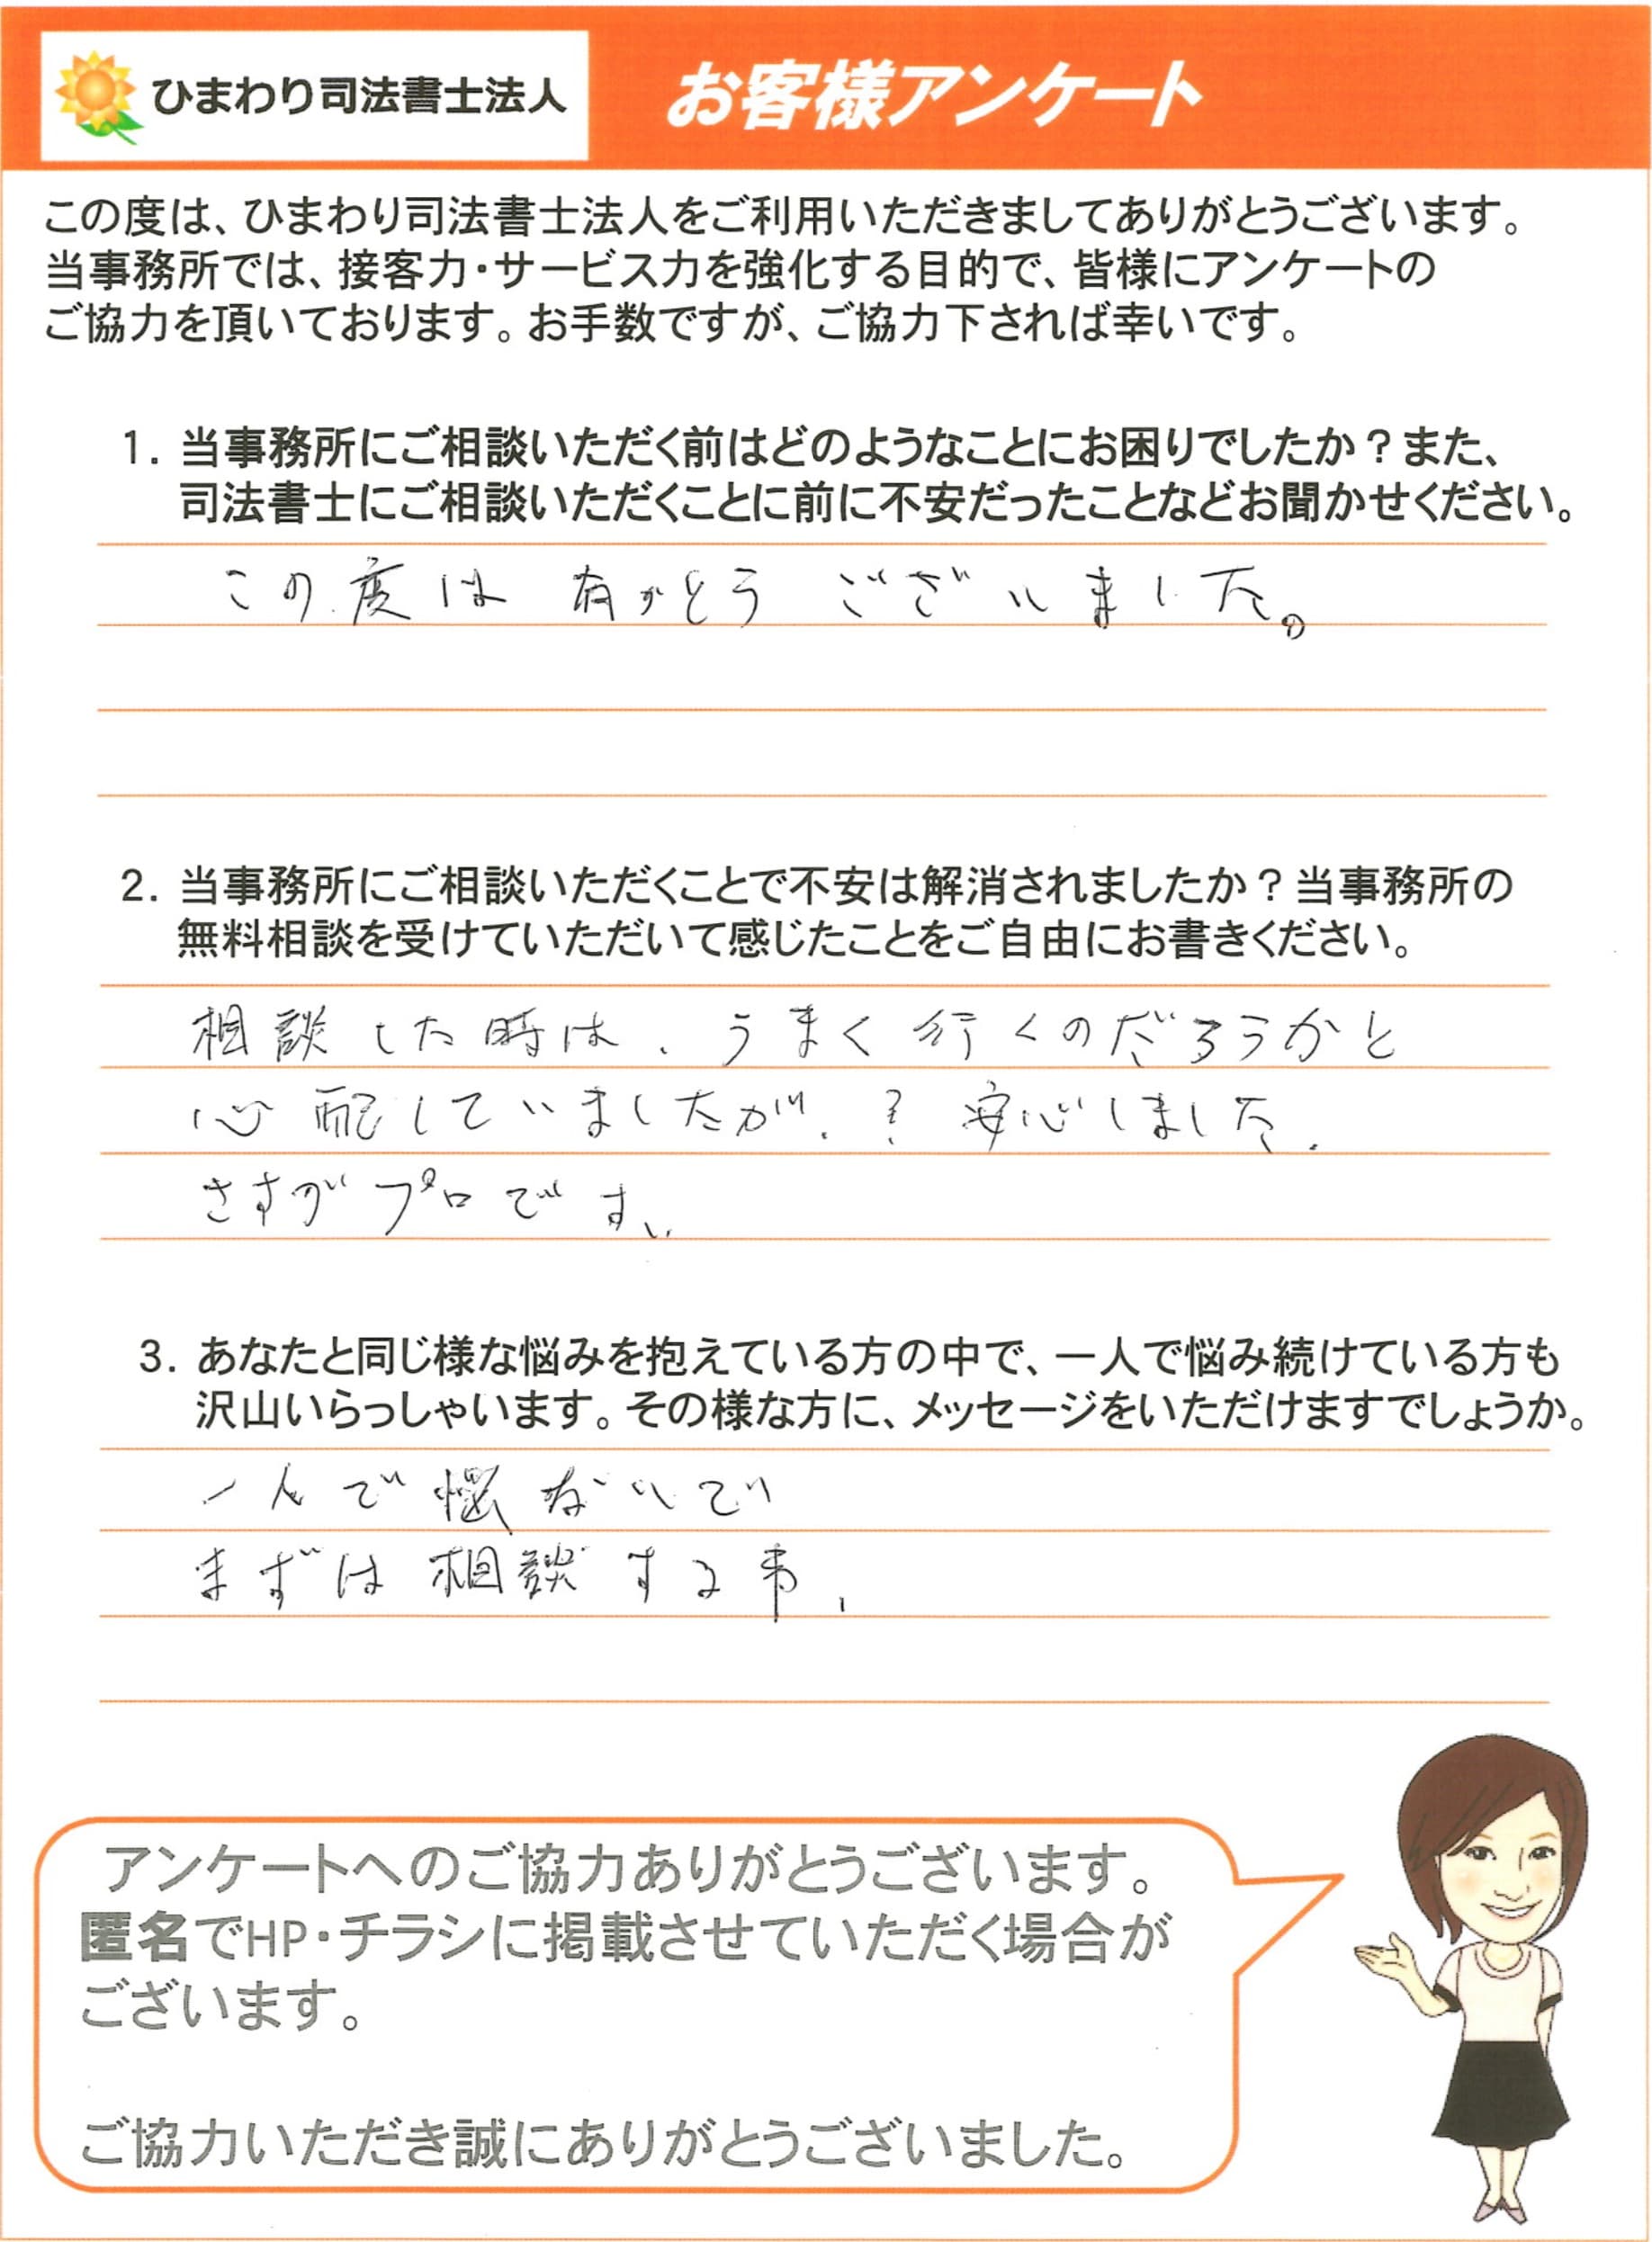 ひまわり司法書士法人
お客様アンケート
この度は、ひまわり司法書士法人をご利用いただきましてありがとうございます。
当事務所では、接客力・サービス力を強化する目的で、皆様にアンケートの
ご協力を頂いております。お手数ですが、ご協力下されば幸いです。
1. 当事務所にご相談いただく前はどのようなことにお困りでしたか？また、
司法書士にご相談いただくことに前に不安だったことなどお聞かせください。
この度は有がとうございました。
2. 当事務所にご相談いただくことで不安は解消されましたか？当事務所の
無料相談を受けていただいて感じたことをご自由にお書きください。
相談した時は、うまく行くのだろうかと
心配していましたが、？安心しました.
さすがプロです。
3. あなたと同じ様な悩みを抱えている方の中で、一人で悩み続けている方も
沢山いらっしゃいます。その様な方に、メッセージをいただけますでしょうか。
一人で悩ないで
まずは相談する事、
アンケートへのご協力ありがとうございます。
匿名でHP・チラシに掲載させていただく場合が
ございます。
ご協力いただき誠にありがとうございました。